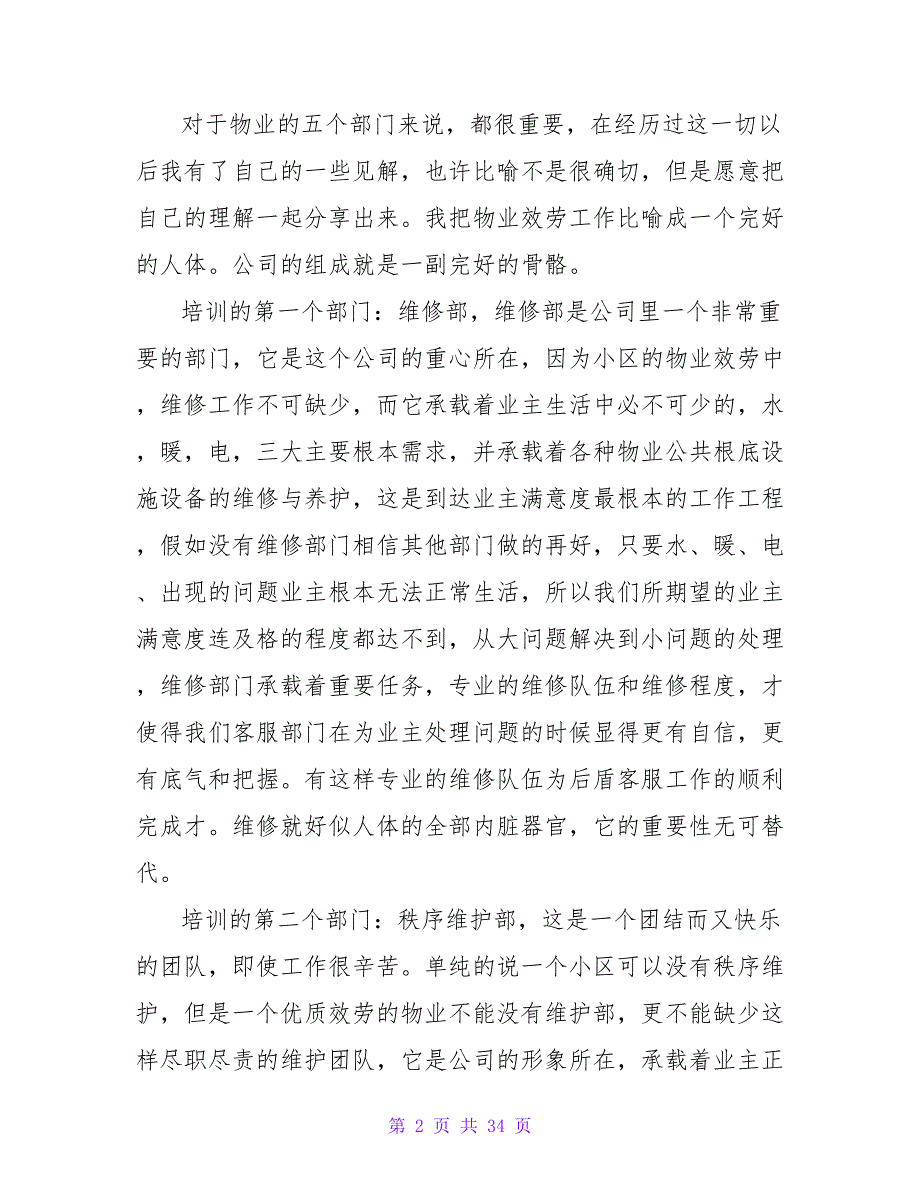 对于物业的五个部门来说，都很重要，在经历过这一切以
后我有了自己的一些见解，也许比喻不是很确切，但是愿意把
自己的理解一起分享出来。我把物业效劳工作比喻成一个完好
的人体。公司的组成就是一副完好的骨骼。
培训的第一个部门：维修部，维修部是公司里一个非常重
要的部门，它是这个公司的重心所在，因为小区的物业效劳中
，维修工作不可缺少，而它承载着业主生活中必不可少的，水
，暖，电，三大主要根本需求，并承载着各种物业公共根底设
施设备的维修与养护，这是到达业主满意度最根本的工作工程
，假如没有维修部门相信其他部门做的再好，只要水、暖、电
、出现的问题业主根本无法正常生活，所以我们所期望的业主
满意度连及格的程度都达不到，从大问题解决到小问题的处理
，维修部门承载着重要任务，专业的维修队伍和维修程度，才
使得我们客服部门在为业主处理问题的时候显得更有自信，更
有底气和把握。有这样专业的维修队伍为后盾客服工作的顺利
完成才。维修就好似人体的全部内脏器官，它的重要性无可替
代。
培训的第二个部门：秩序维护部，这是一个团结而又快乐
的团队，即使工作很辛苦。单纯的说一个小区可以没有秩序维
护，但是一个优质效劳的物业不能没有维护部，更不能缺少这
样尽职尽责的维护团队，它是公司的形象所在，承载着业主正
第 2 页 共 34 页